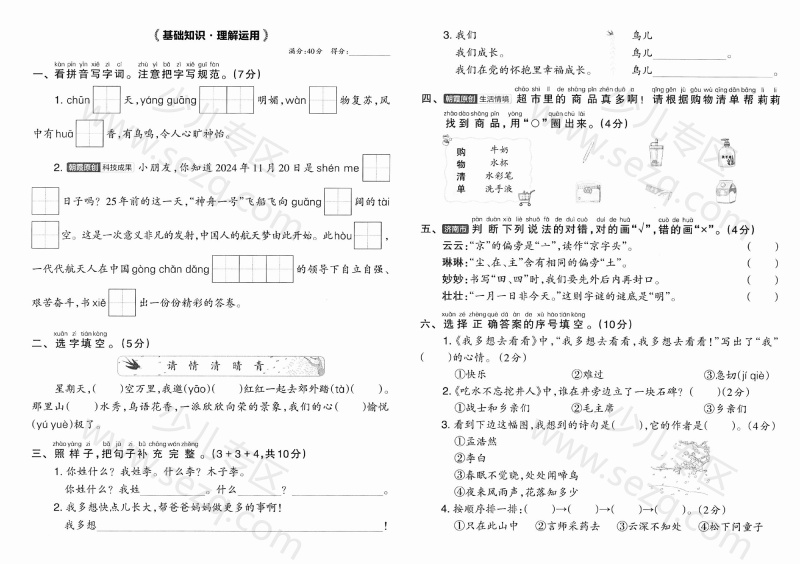 《基础知识·理解运用》
满分:40分 得分:
kàn pīn yīn xiě zì cí zhù yì bǎ zì xiě guī fàn
一、看拼音写字词。注意把字写规范。(7分)
1. chūn 天,yáng guāng 明媚,wàn 物复苏,风
中有huā 香,有鸟鸣,令人心旷神怡。
2. 朝霞原创 科技成果 小朋友,你知道2024年11月20日是shén me
日子吗?25年前的这一天,“神舟一号”飞船飞向guǎng 阔的tài
空。这是一次意义非凡的发射,中国人的航天梦由此开始。此hòu ,
一代代航天人在中国gòng chǎn dǎng 的领导下自立自强、
艰苦奋斗,书xiě 出一份份精彩的答卷。
xuǎn zì tián kòng
二、选字填空。(5分)
请 情 清 晴 青
星期天,( )空万里,我邀(yāo)( )红红一起去郊外踏(tà)( )。
那里山( )水秀,鸟语花香,一派欣欣向荣的景象,我们的心( )愉悦
(yú yuè)极了。
zhào yàng zi bǎ jù zi bǔ chōng wán zhěng
三、照样子,把句子补充完整。(3+3+4,共10分)
1. 你姓什么?我姓李。什么李?木子李。
你姓什么?我姓 。什么 ? 。
2. 我多想快点儿长大,帮爸爸妈妈做更多的事啊!
我多想 !
3. 我们 鸟儿
我们成长。 鸟儿 。
我们在党的怀抱里幸福成长。 鸟儿 。
chāo shì lǐ de shāng pǐn zhēn duō a qǐng gēn jù gòu wù qīng dān bāng lì li
四、朝霞原创 生活情境 超市里的商品真多啊!请根据购物清单帮莉莉
zhǎo dào shāng pǐn yòng quān chū lái
找到商品,用“○”圈出来。(4分)
购物清单
牛奶
水杯
水彩笔
洗手液
pàn duàn xià liè shuō fǎ de duì cuò duì de huà cuò de huà
五、济南市 判断下列说法的对错,对的画“√”,错的画“×”。(4分)
云云:“京”的偏旁是“亠”,读作“京字头”。 ( )
琳琳:“尘、在、主”含有相同的偏旁“土”。 ( )
妙妙:书写“田、四”时,我们要先外后内再封口。 ( )
壮壮:“一月一日非今天。”这则字谜的谜底是“明”。 ( )
xuǎn zé zhèng què dá àn de xù hào tián kòng
六、选择正确答案的序号填空。(10分)
1.《我多想去看看》中,“我多想去看看,我多想去看看!”写出了“我”
( )的心情。(2分)
①快乐 ②难过 ③急切(jí qiè)
2.《吃水不忘挖井人》中,谁在井旁边立了一块石碑?( )(2分)
①战士和乡亲们 ②毛主席 ③乡亲们
3. 看到下边这幅图,我想到的诗句是( ),它的作者是( )。(4分)
①孟浩然
②李白
③春眠不觉晓,处处闻啼鸟
④夜来风雨声,花落知多少
4. 按顺序排一排:( )→( )→( )→( )。(2分)
①只在此山中 ②言师采药去 ③云深不知处 ④松下问童子
少儿专区
www.sezq.com
少儿专区
www.sezq.com